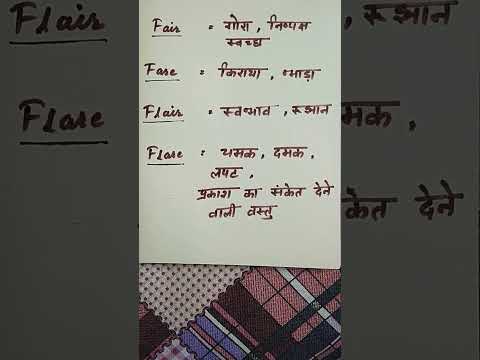 Fair = गोरा, निष्पक्ष
स्वच्छ
Fare = किराया, भाड़ा
Flair = स्वभाव, रूझान
Flare = चमक, दमक,
लपट,
प्रकाश का संकेत देने
वाली वस्तु